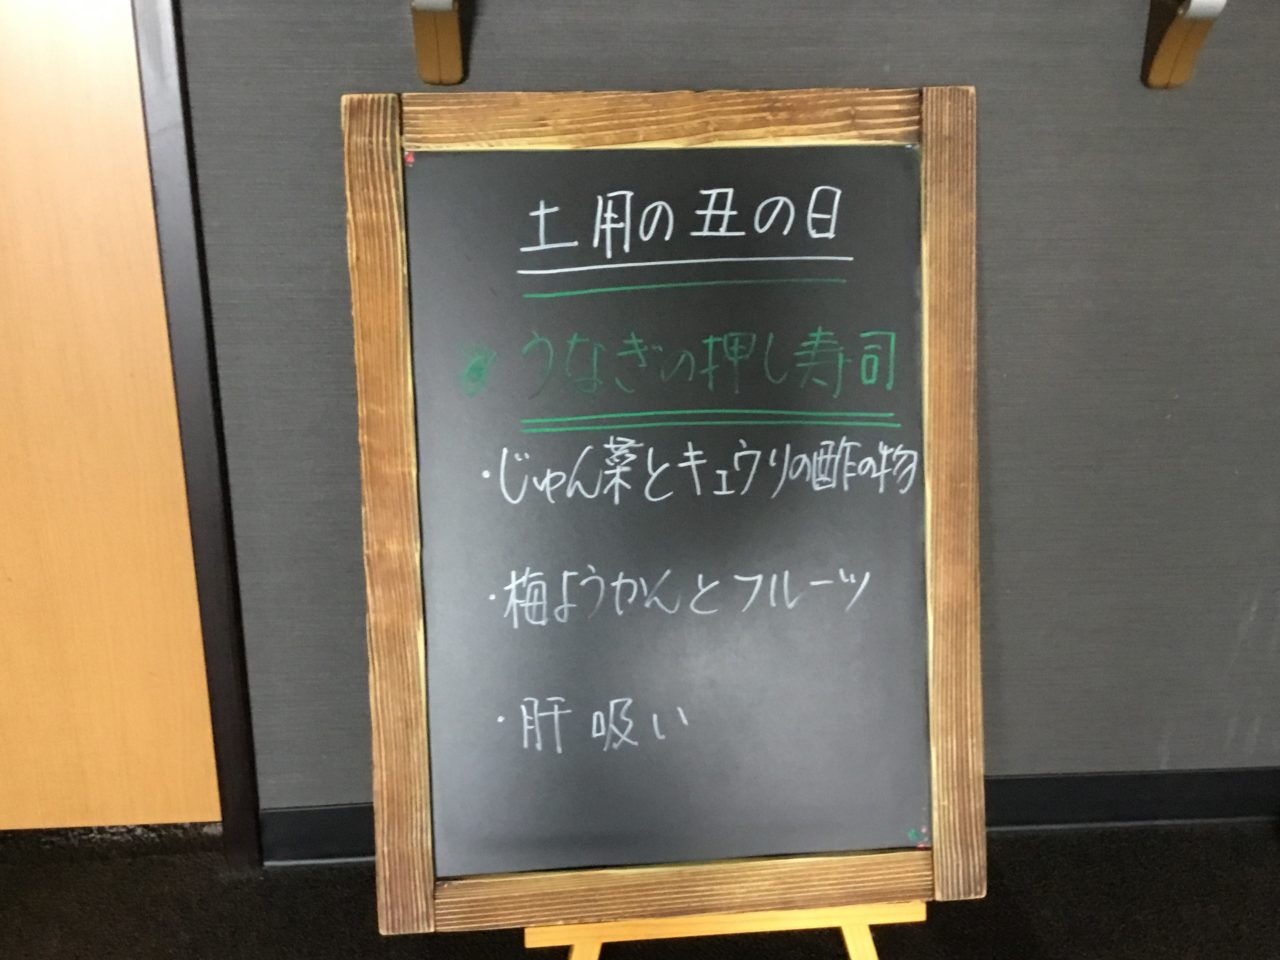 土用の丑の日
うなぎの押し寿司
・じゅん菜とキュウリの酢の物
・梅ようかんとフルーツ
・肝吸い